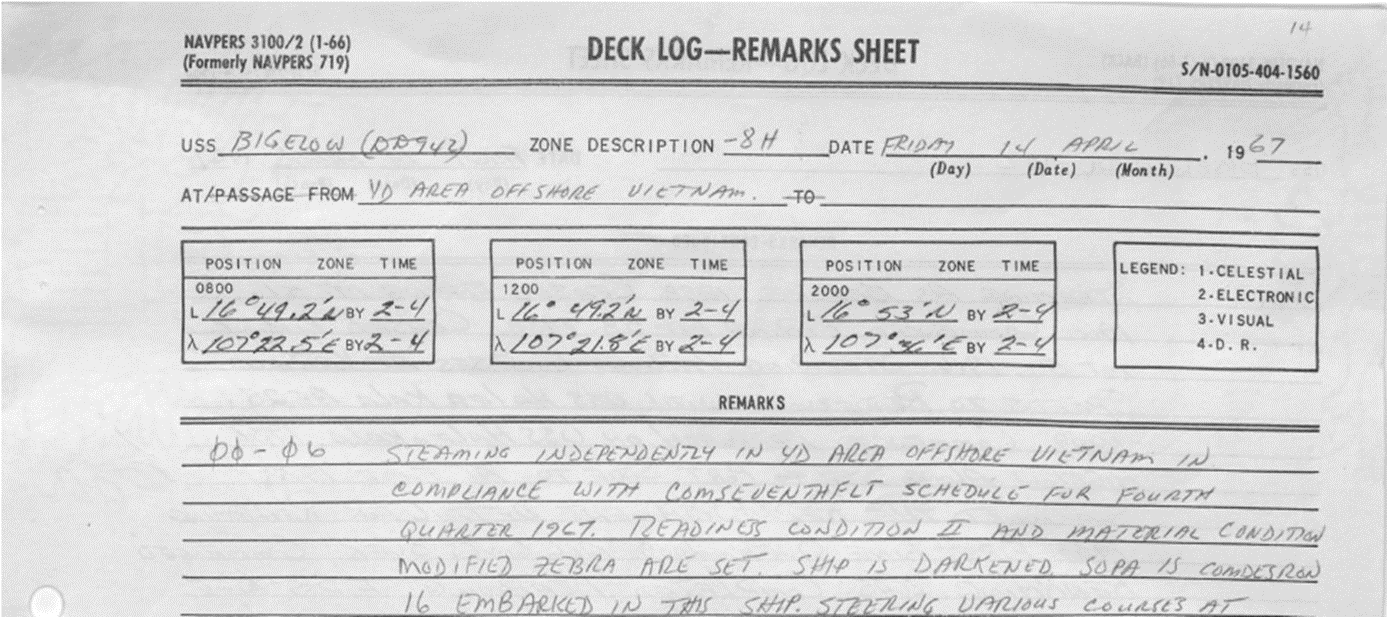 14
NAVPERS 3100/2 (1-66)
(Formerly NAVPERS 719)
DECK LOG—REMARKS SHEET
S/N-0105-404-1560
USS BIGELOW (DD942) ZONE DESCRIPTION -8H DATE FRIDAY 14 APRIL . 1967
(Day) (Date) (Month)
AT/PASSAGE FROM YD AREA OFFSHORE VIETNAM. TO
POSITION ZONE TIME
0800
L 16° 49.2'N BY 2-4
λ 107° 22.5'E BY 2-4
POSITION ZONE TIME
1200
L 16° 49.2'N BY 2-4
λ 107° 21.8'E BY 2-4
POSITION ZONE TIME
2000
L 16° 53'N BY 2-4
λ 107° 36'E BY 2-4
LEGEND: 1-CELESTIAL
2-ELECTRONIC
3-VISUAL
4-D. R.
REMARKS
00-06 STEAMING INDEPENDENTLY IN YD AREA OFFSHORE VIETNAM IN
COMPLIANCE WITH COMSEVENTHFLT SCHEDULE FOR FOURTH
QUARTER 1967. READINESS CONDITION II AND MATERIAL CONDITION
MODIFIED ZEBRA ARE SET. SHIP IS DARKENED. SOPA IS COMDESRON
16 EMBARKED IN THIS SHIP. STEERING VARIOUS COURSES AT